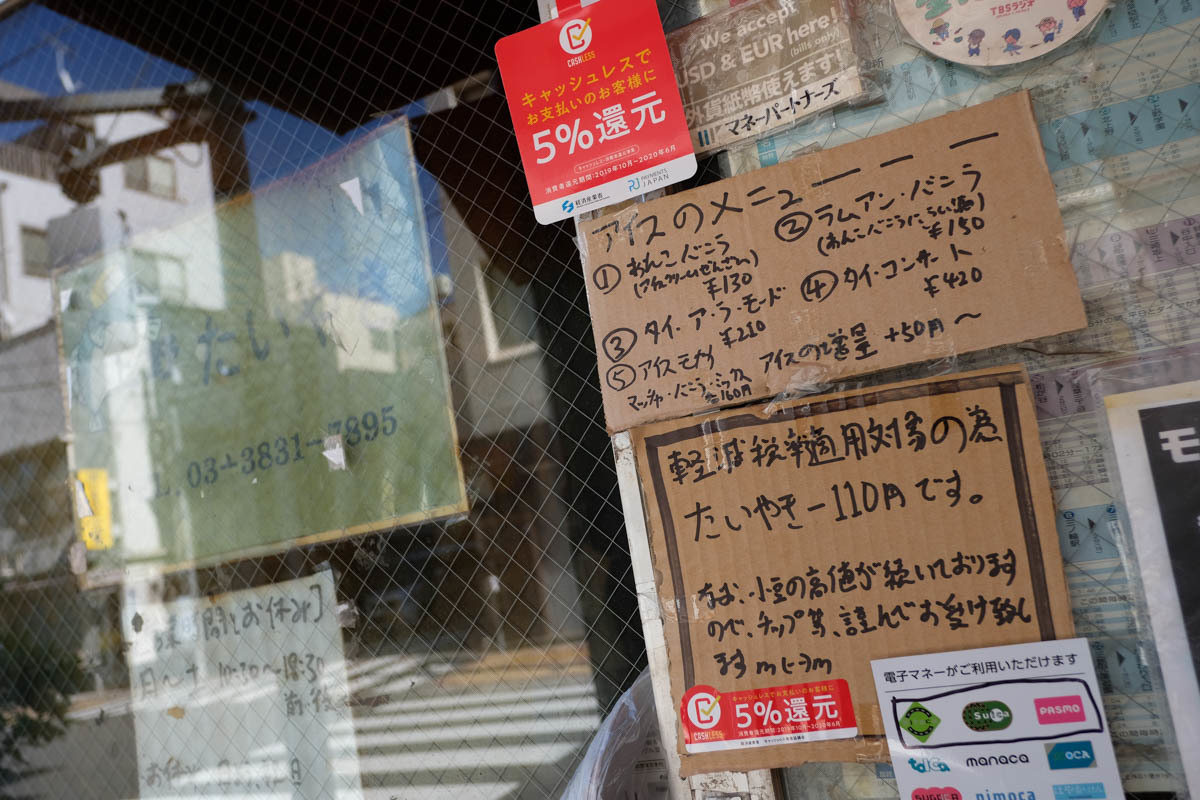 CASHLESS
キャッシュレスで
お支払いのお客様に
5%還元
キャッシュレス・消費者還元事業
消費者還元期間:2019年10月-2020年6月
経済産業省
PAYMENTS JAPAN
We accept
USD & EUR here!
(bills only)
外貨紙幣使えます!
マネーパートナーズ
TBSラジオ
アイスのメニュー
① あんこバニラ
¥130
② ラムアン・バニラ
¥150
③ タイ・ア・ラ・モード
¥210
④ タイ・コンサート
¥420
⑤ アイスモナカ
マッチャ・バニラ・ミックス
160円
アイスの増量 +50円〜
軽減税率適用対象の為
たいやき一110円です。
なお、小豆の高値が続いております
ので、チップ等、謹んでお受け致し
ます m(_)m
CASHLESS
キャッシュレスでお支払いのお客様に
5%還元
消費者還元期間:2019年10月-2020年6月
電子マネーがご利用いただけます
Suica
PASMO
toica
manaca
ICOCA
SUGOCA
nimoca
はやかけん
たい
03-3831-7895
時間とお休み]
10:30〜18:30
前後
モ